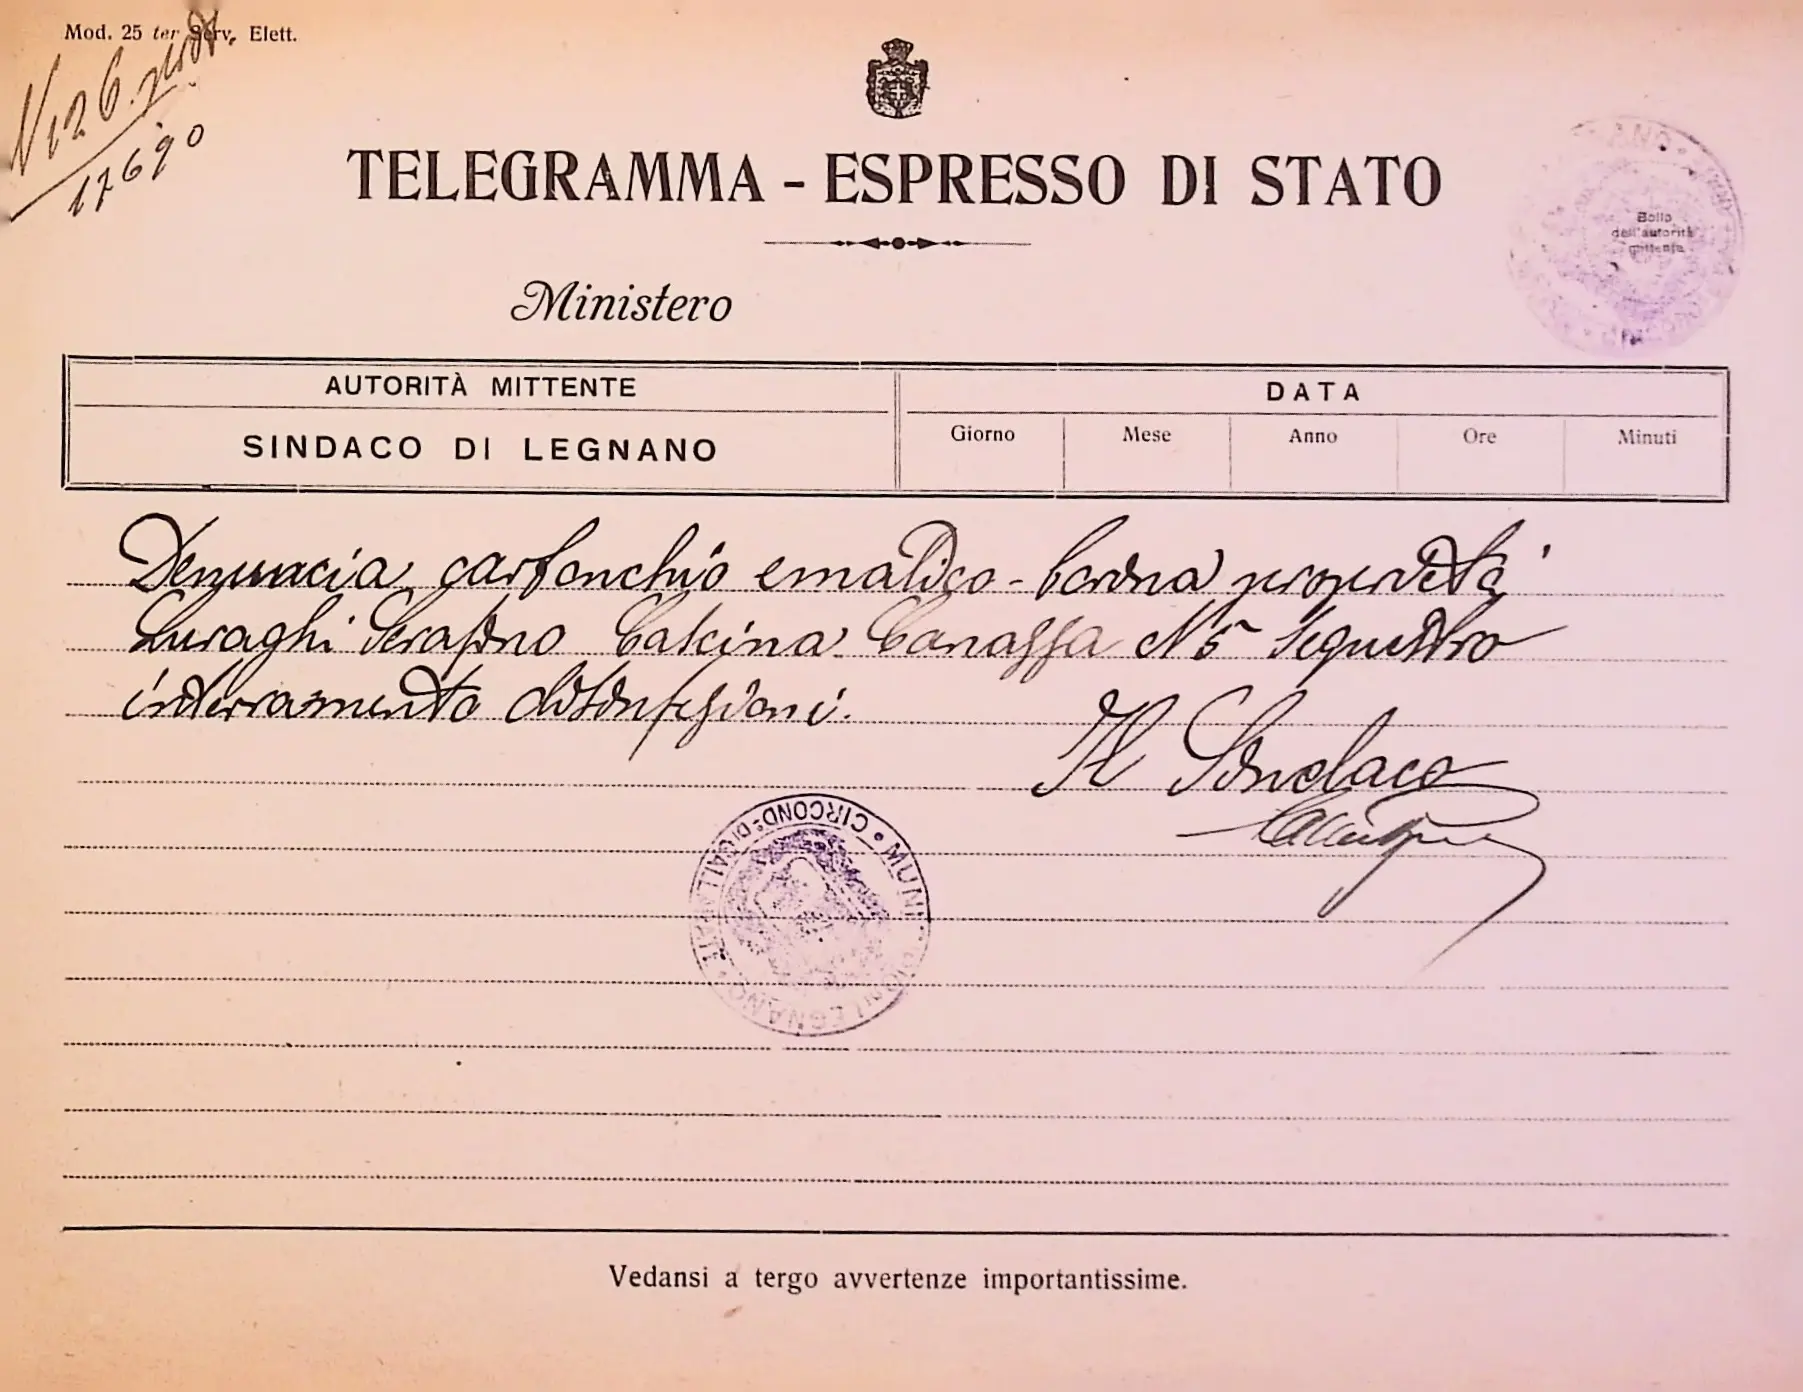 Mod. 25 ter Serv. Elett.
N 126
17690
TELEGRAMMA - ESPRESSO DI STATO
Bollo
dell'autorità
mittente
Ministero
AUTORITÀ MITTENTE
DATA
SINDACO DI LEGNANO
Giorno Mese Anno Ore Minuti
Denuncia carbonchio ematico - bovina proprietà
Luraghi Serafino Cascina Canazza N 5 Sequestro
interramento disinfezioni.
Il Sindaco
MUNICIPIO DI LEGNANO • CIRCOND.º DI GALLARATE
Vedansi a tergo avvertenze importantissime.